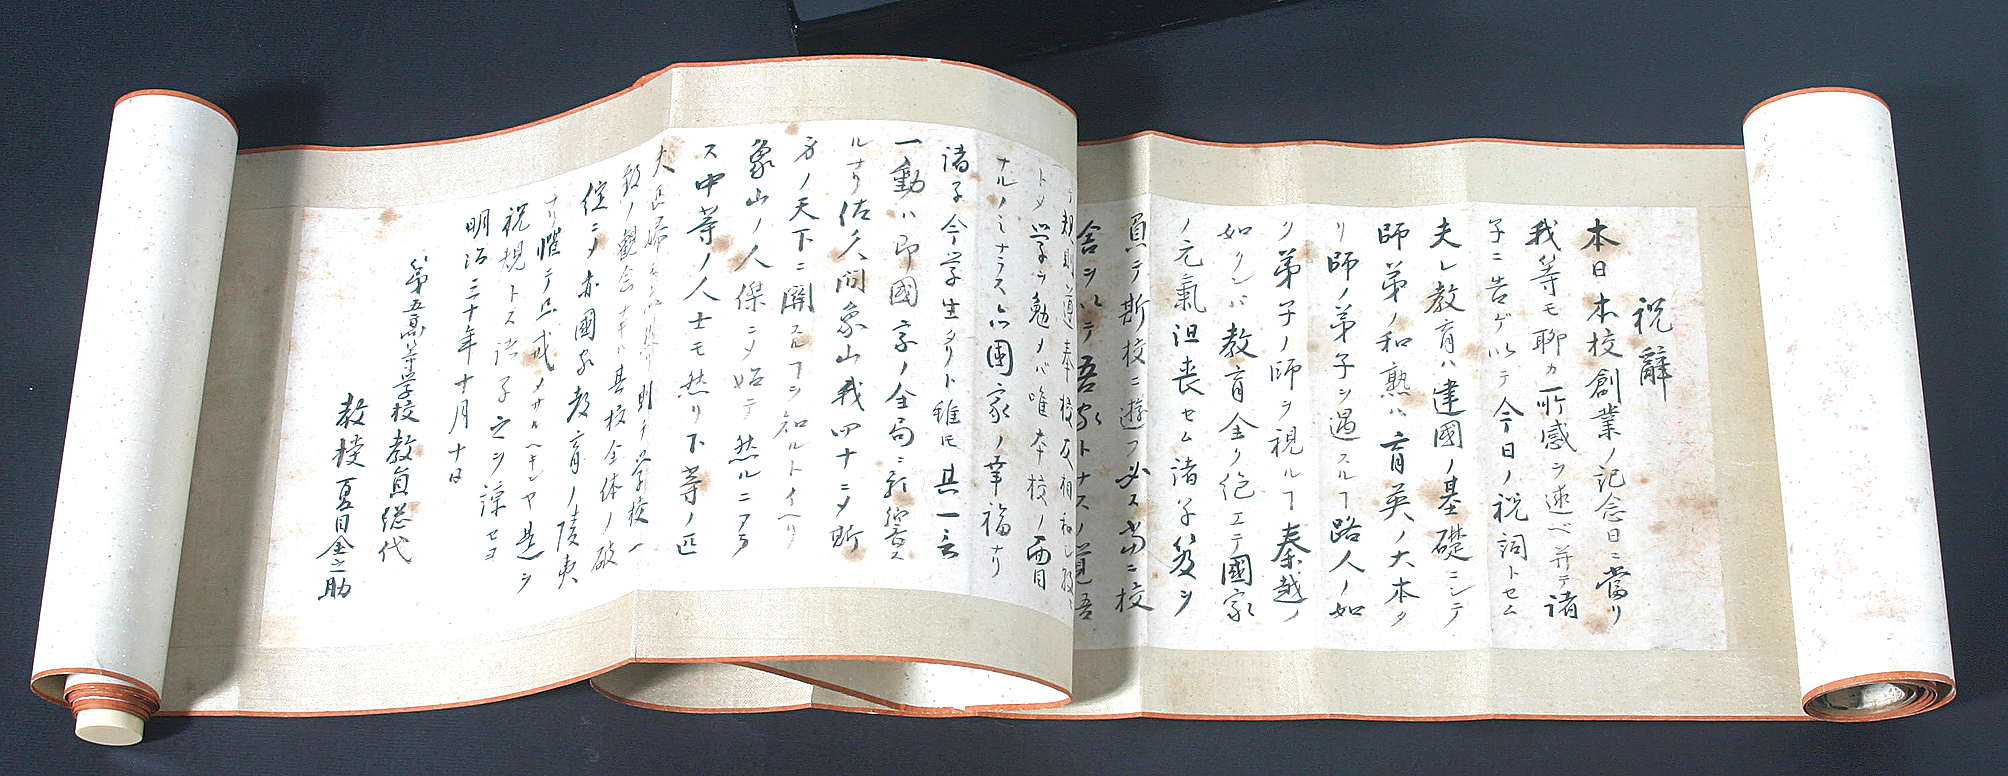 祝辭
本日本校創業ノ記念日ニ當リ
我等モ聊カ所感ヲ述ベ并テ諸
子ニ告ゲ以テ今日ノ祝詞トセム
夫レ教育ハ建國ノ基礎ニシテ
師弟ノ和熟ハ育英ノ大本タ
リ師ノ弟子ヲ遇スルヿ路人ノ如
ク弟子ノ師ヲ視ルヿ秦越ノ
如クンバ教育全ク絶エテ國家
ノ元氣沮喪セム諸子笈ヲ
負フテ斯校ニ遊フ必ス當ニ校
舍ヲ以テ吾家トナスノ覚悟
規則ヲ遵奉校友相和シ
トメ学ヲ勉メバ唯本校ノ面目
ナルノミナラス亦國家ノ幸福ナリ
諸子今学生タリト雖モ其一言
一動ハ即國家ノ全局ニ影響ス
ルナリ佐久間象山我四十ニメ斯
身ノ天下ニ関スルヿヲ知ルトイヘリ
象山ノ人傑ニメ始テ然ルニアラ
ス中等ノ人士モ然リ下等ノ匹
夫匹婦モ亦然リ則チ学校一
致ノ観念ナキハ其校全体ノ破
壞ニメ亦國家教育ノ陵夷
ナリ惟テ且戒メサルヘキンヤ是ヲ
祝規トス諸子之ヲ諒セヨ
明治三十年十月十日
第五高等学校教員総代
教授夏目金之助